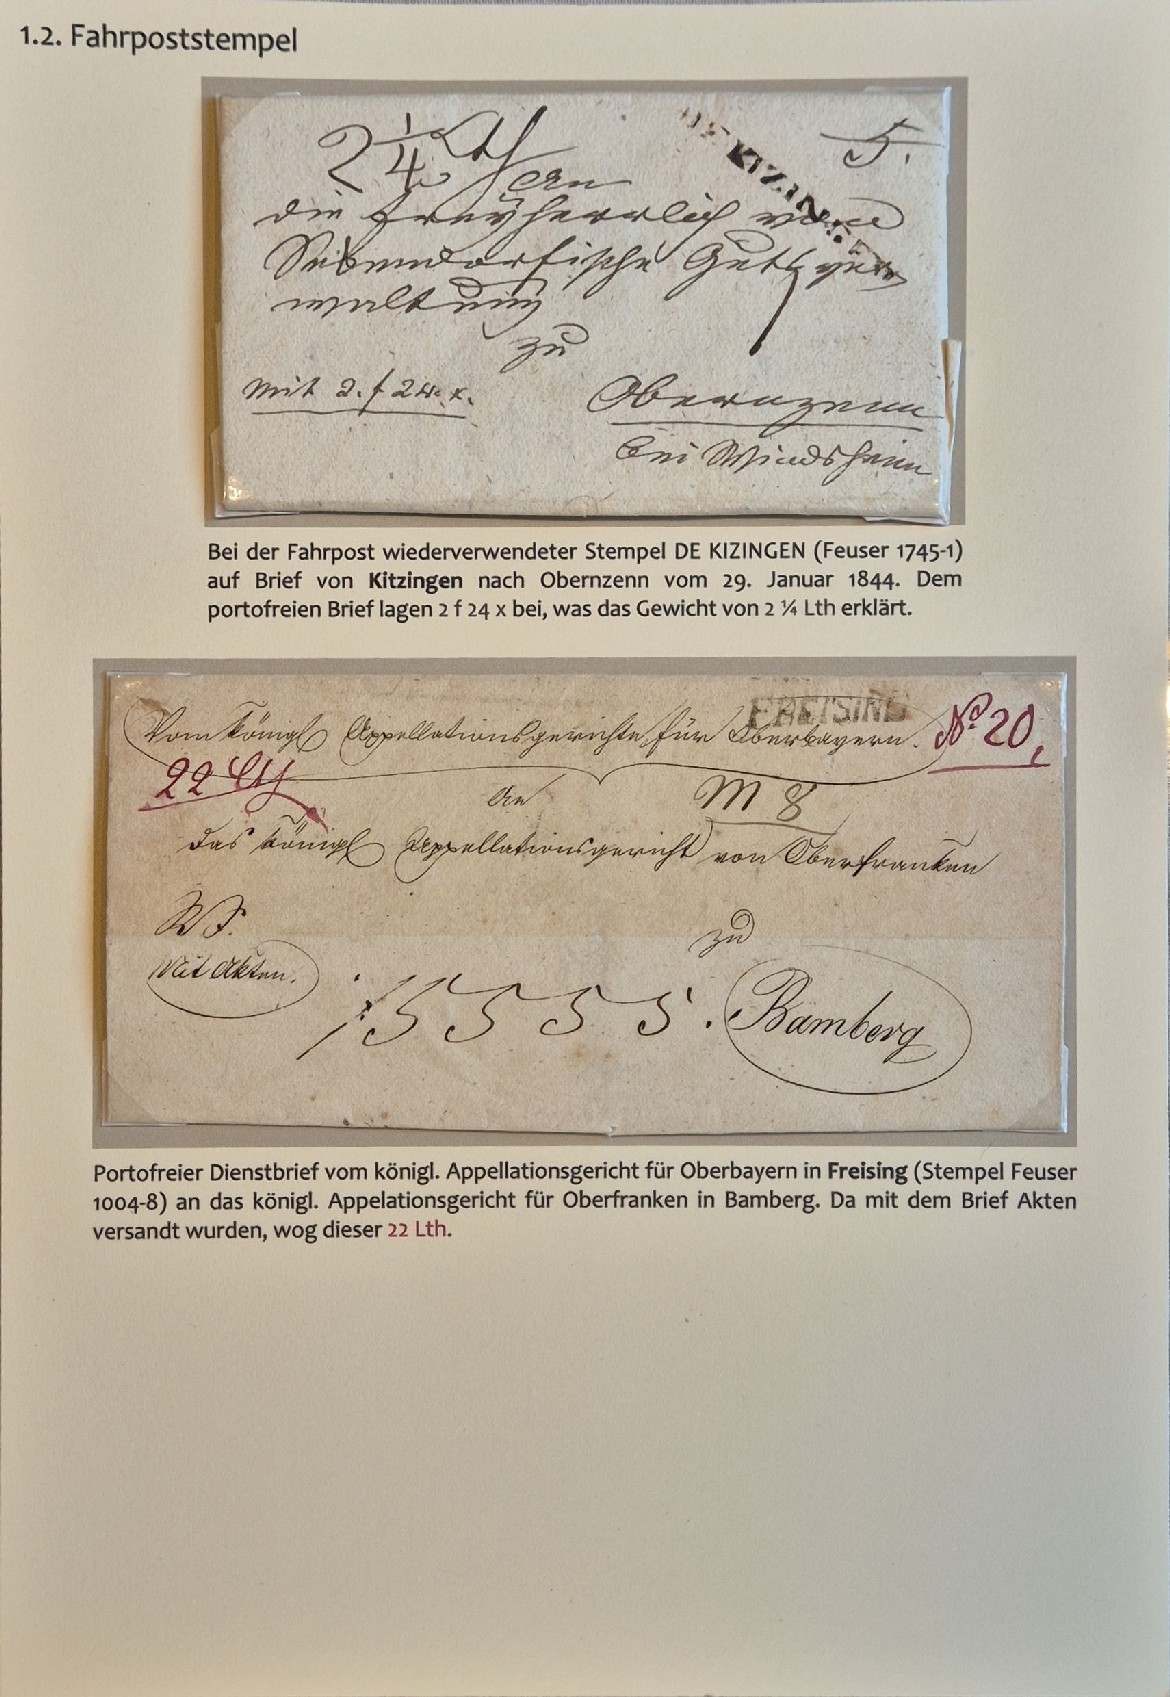 1.2. Fahrpoststempel
2 1/4 Lth
DE KIZINGEN
5.
An
die Freyherrlich von
Sekendorfische Gutsver
waltung
zu
mit 2. f 24. x.
Obernzenn
bei Windsheim
Bei der Fahrpost wiederverwendeter Stempel DE KIZINGEN (Feuser 1745-1)
auf Brief von Kitzingen nach Obernzenn vom 29. Januar 1844. Dem
portofreien Brief lagen 2 f 24 x bei, was das Gewicht von 2 ¼ Lth erklärt.
FREISING
Vom königl Appellationsgerichte für Oberbayern.
No 20,
22 Lth
An
M 8
das königl Appellationsgericht von Oberfranken
zu
Mit Akten.
15555.
Bamberg
Portofreier Dienstbrief vom königl. Appellationsgericht für Oberbayern in Freising (Stempel Feuser
1004-8) an das königl. Appelationsgericht für Oberfranken in Bamberg. Da mit dem Brief Akten
versandt wurden, wog dieser 22 Lth.